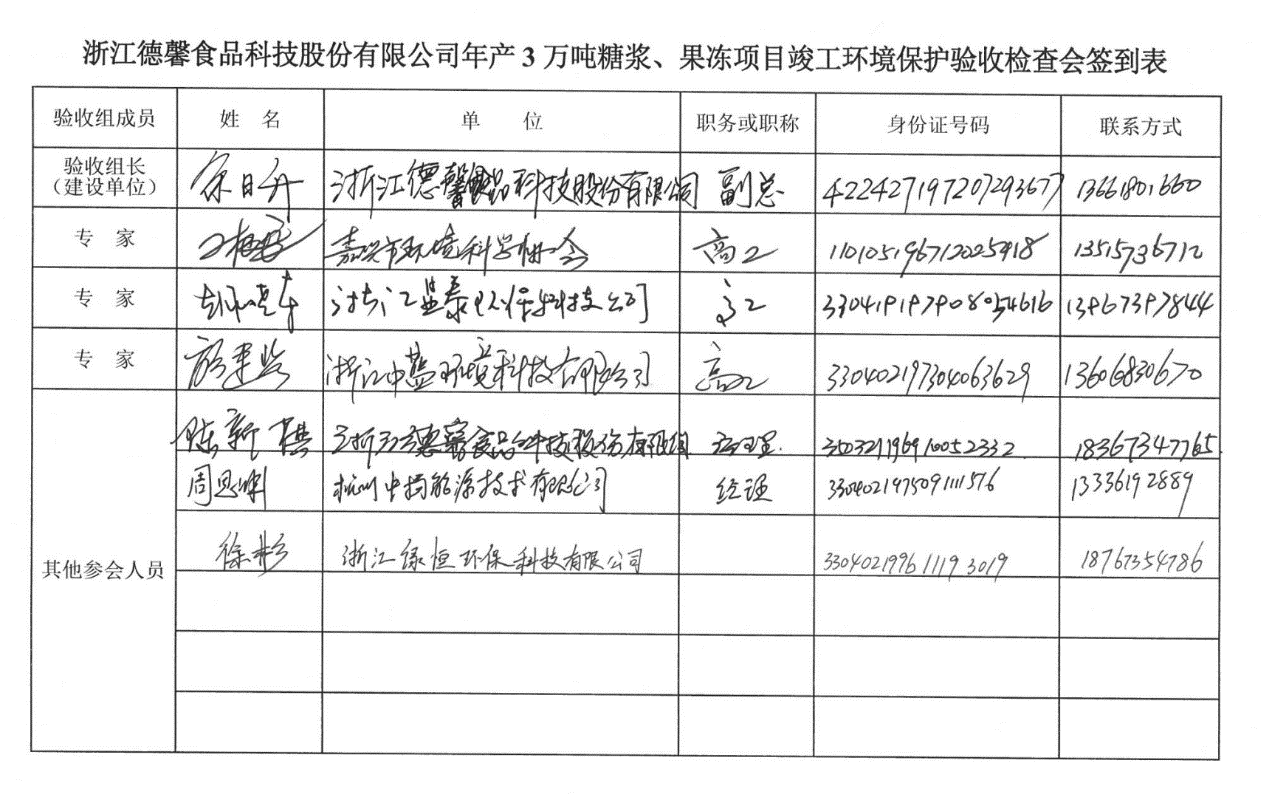 浙江德馨食品科技股份有限公司年产 3 万吨糖浆、果冻项目竣工环境保护验收检查会签到表
验收组成员 姓 名 单 位 职务或职称 身份证号码 联系方式
验收组长
（建设单位） 徐日升 浙江德馨食品科技股份有限公司 副总 422427197207293677 13661801660
专 家 嘉兴市环境科学学会 高工 110105196712025418 13515736712
专 家 浙江监泰环保科技公司 高工 330419197908054616 13967397844
专 家 浙江中蓝环境科技有限公司 高工 330402197304063629 13606830670
陈新 浙江德馨食品科技股份有限公司 经理 350321196910052332 18367347765
周思 杭州中 能源技术有限公司 经理 330402197509111576 13336192889
其他参会人员 徐彬 浙江绿恒环保科技有限公司 330402199611193019 18767354786